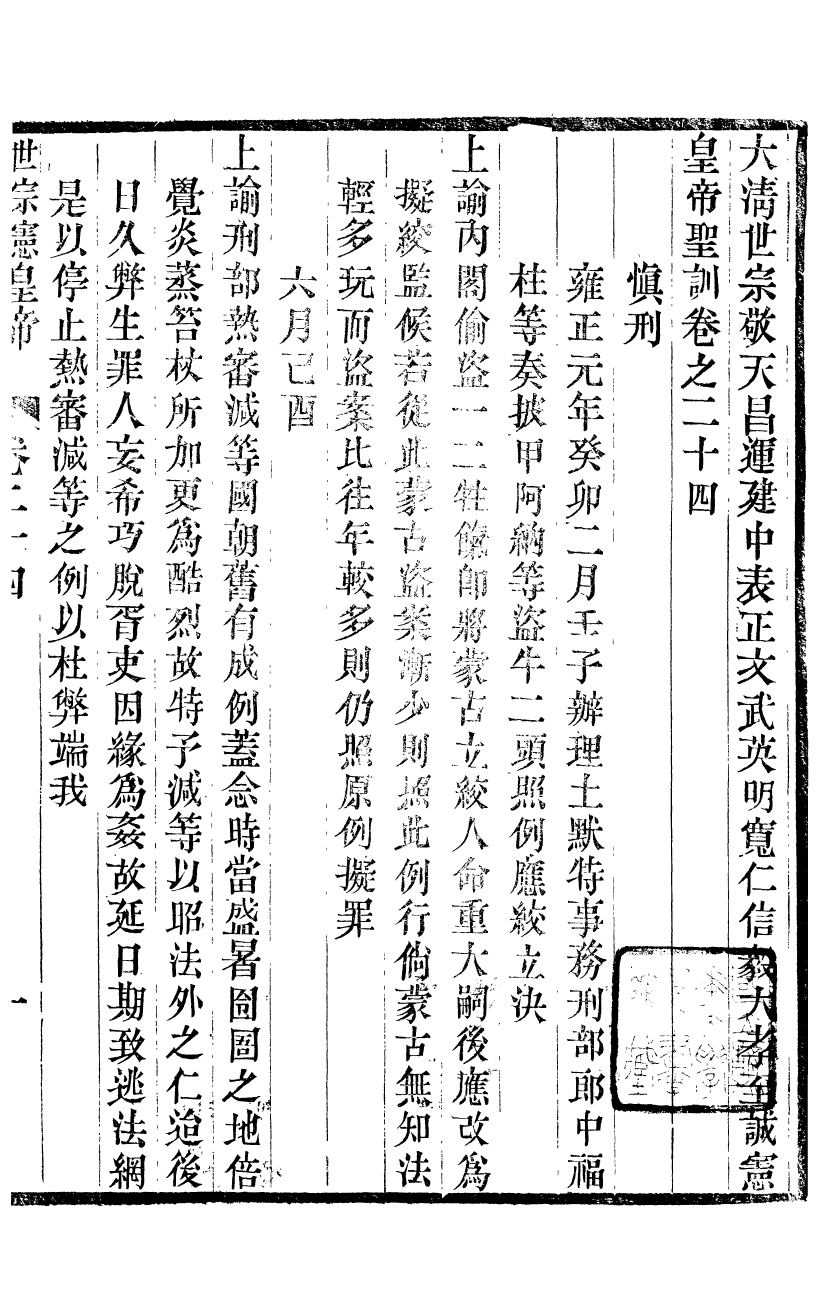 大淸世宗敬天昌運建中表正文武英明寬仁信毅大孝至誠憲
皇帝聖訓卷之二十四
愼刑
雍正元年癸卯二月壬子辦理土默特事務刑部郎中福
柱等奏披甲阿納等盜牛二頭照例應絞立決
上諭內閣偷盜一二牲畜卽將蒙古立絞人命重大嗣後應改爲
擬絞監候若從此蒙古盜案漸少則照此例行倘蒙古無知法
輕多玩而盜案比往年較多則仍照原例擬罪
六月己酉
上諭刑部熱審減等國朝舊有成例蓋念時當盛暑囹圄之地倍
覺炎蒸笞杖所加更爲酷烈故特予減等以昭法外之仁迨後
日久弊生罪人妄希巧脫胥吏因緣爲姦故延日期致逃法網
是以停止熱審減等之例以杜弊端我
世宗憲皇帝 卷二十四 一